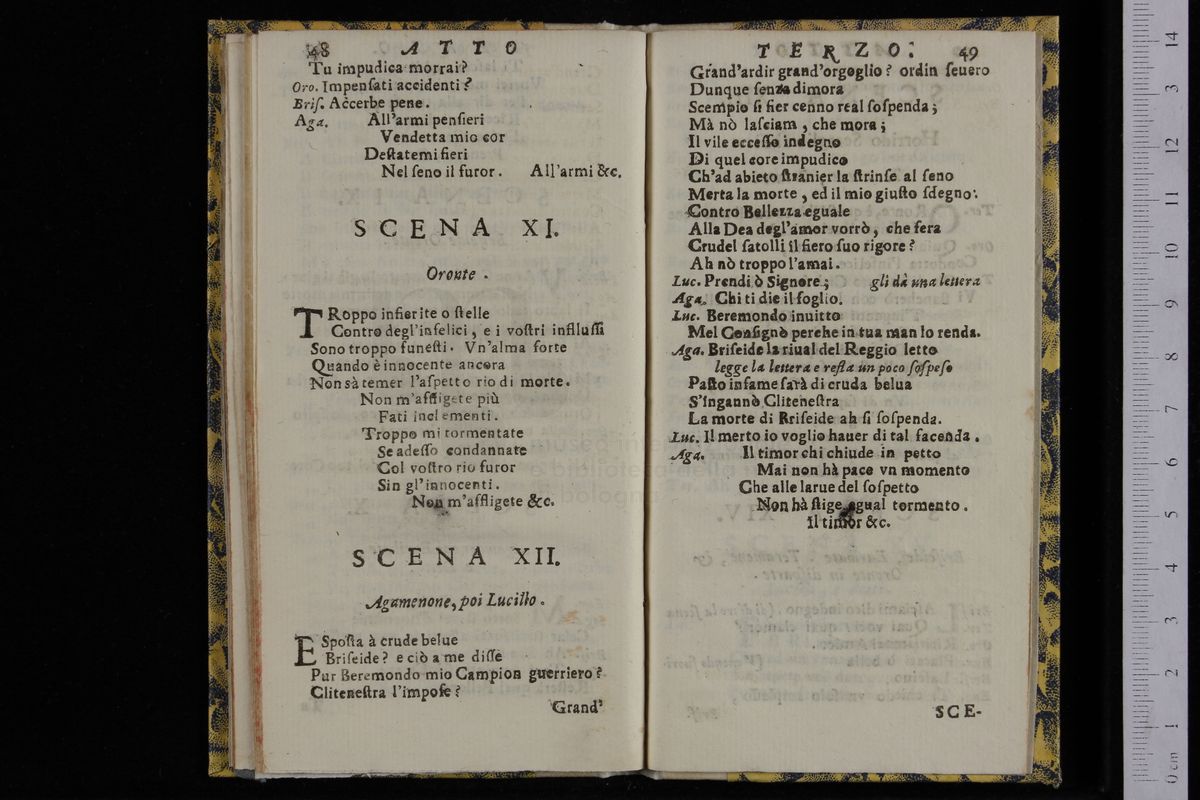 48 ATTO
Tu impudica morrai?
Oro. Impenſati accidenti?
Briſ. Accerbe pene.
Aga. All'armi penſieri
Vendetta mio cor
Deſtatemi fieri
Nel ſeno il furor. All'armi &c.
SCENA XI.
Oronte.
TRoppo infierite o ſtelle
Contro degl'infelici, e i voſtri infliuſſi
Sono troppo funeſti. Vn'alma forte
Quando è innocente ancora
Non sà temer l'aſpetto rio di morte.
Non m'affligete più
Fati inclementi.
Troppo mi tormentate
Se adeſſo condannate
Col voſtro rio furor
Sin gl'innocenti.
Non m'affligete &c.
SCENA XII.
Agamenone, poi Lucillo.
ESpoſta à crude belue
Briſeide? e ciò a me diſſe
Pur Beremondo mio Campion guerriero?
Cliteneſtra l'impoſe?
Grand'
TERZO. 49
Grand'ardir grand'orgoglio? ordin ſeuero
Dunque ſenza dimora
Scempio ſi fier cenno real ſoſpenda;
Mà nò laſciam, che mora;
Il vile ecceſſo indegno
Di quel core impudico
Ch'ad abieto ſtranier la ſtrinſe al ſeno
Merta la morte, ed il mio giuſto ſdegno.
Contro Bellezza eguale
Alla Dea degl'amor vorrò, che fera
Crudel ſatolli il fiero ſuo rigore?
Ah nò troppo l'amai.
Luc. Prendi ò Signore; gli dà una lettera
Aga. Chi ti die il foglio.
Luc. Beremondo inuitto
Mel Conſignò perche in tua man lo renda.
Aga. Briſeide la riual del Reggio letto
legge la lettera e reſta un poco ſoſpeſo
Paſto infame ſarà di cruda belua
S'ingannò Cliteneſtra
La morte di Briſeide ah ſi ſoſpenda.
Luc. Il merto io voglio hauer di tal facenda.
Aga. Il timor chi chiude in petto
Mai non hà pace vn momento
Che alle larue del ſoſpetto
Non hà ſtige egual tormento.
Il timor &c.
SCE-